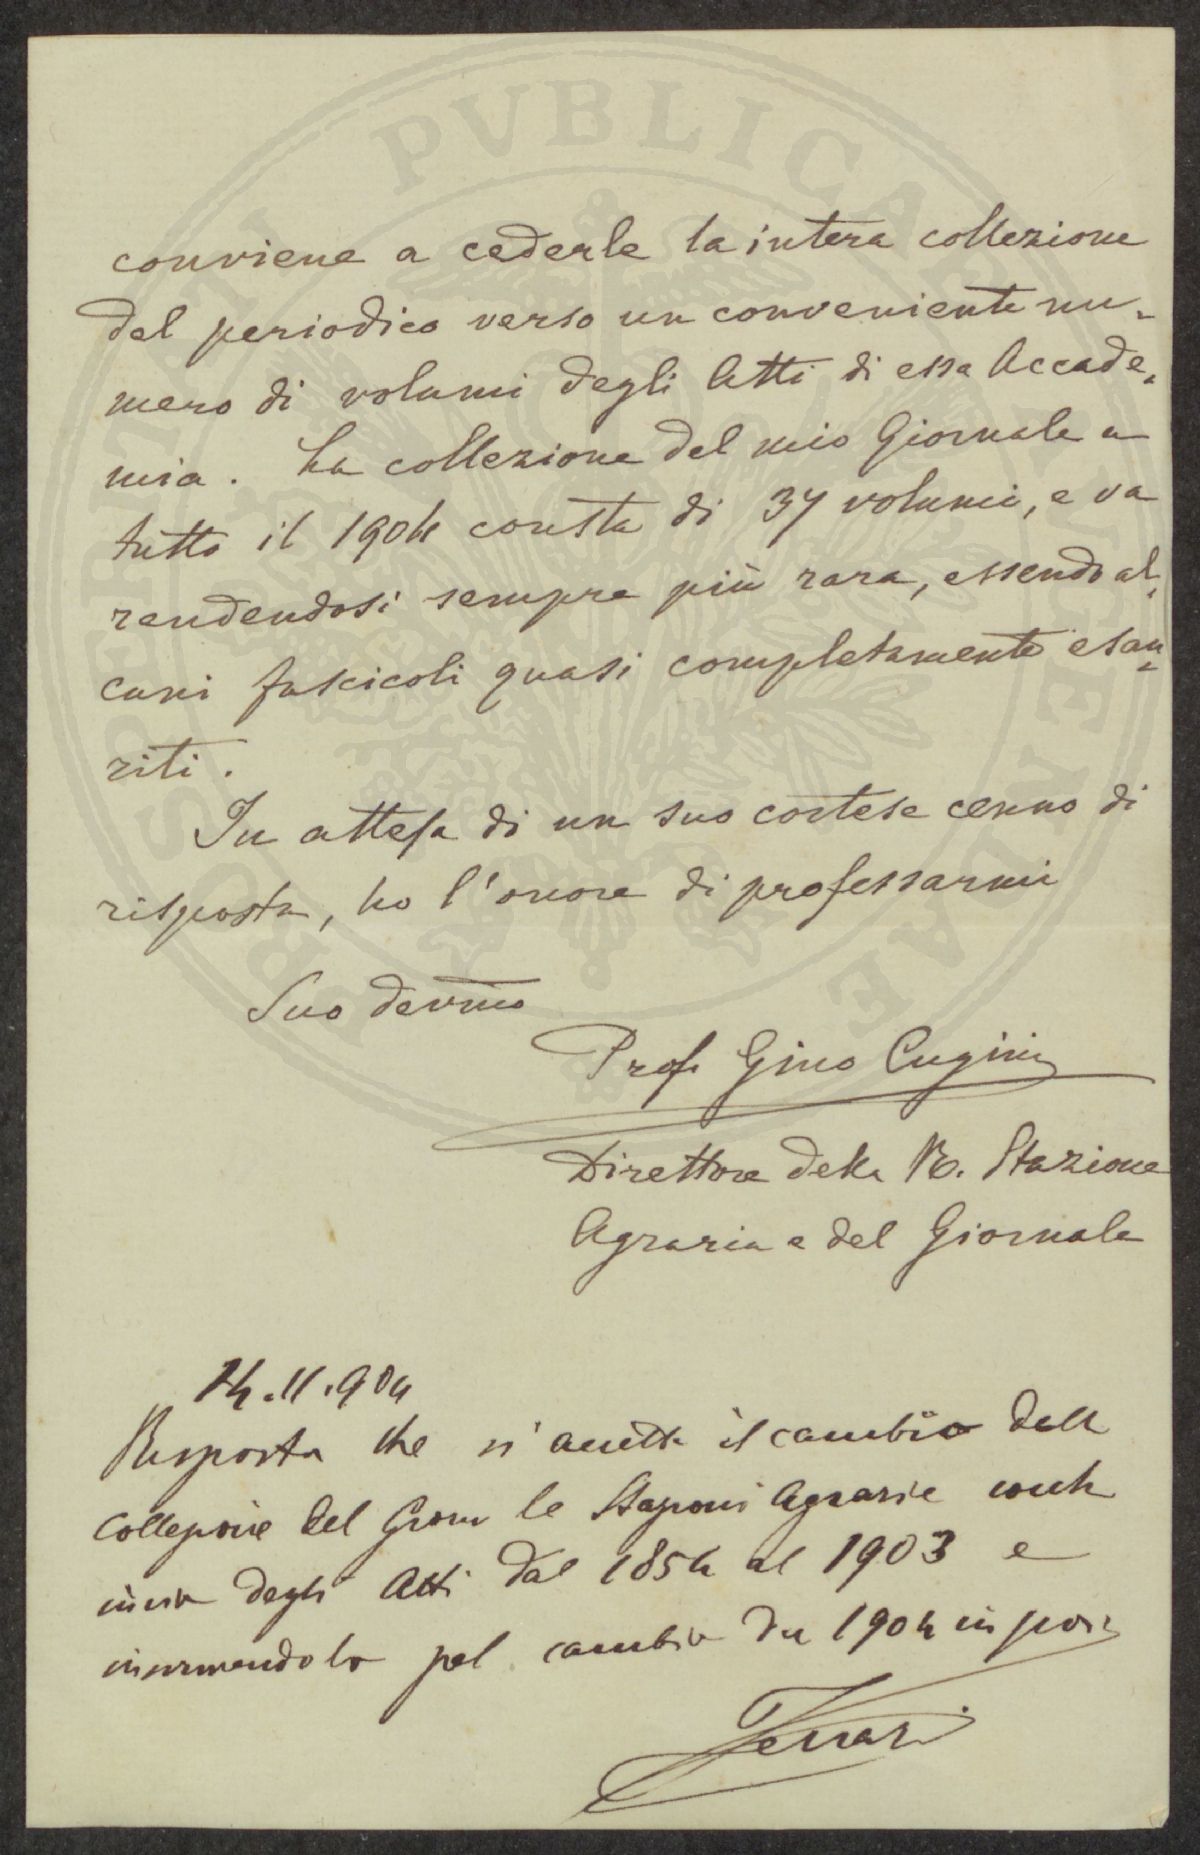 conviene a cederle la intera collezione
del periodico verso un conveniente nu-
mero di volumi degli Atti di essa Accade-
mia. La collezione del mio Giornale a
tutto il 1904 consta di 37 volumi, e va
rendendosi sempre più rara, essendo al-
cuni fascicoli quasi completamente esau-
riti.
In attesa di un suo cortese cenno di
risposta, ho l'onore di professarmi
Suo devmo
Prof Gino Cugini
Direttore della R. Stazione
Agraria e del Giornale
14.11.904
Risposta che si accetta il cambio della
collezione del Giorn le Stazioni Agrarie
invio degli Atti dal 1854 al 1903 e
pel cambio dal 1904 in poi
Ferrari
PROSPERITATI PVBLICAE AVGENDAE